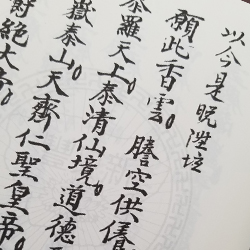 以今是晚陞壇
願此香雲。謄空供
羅天上。泰清仙境。道德
嶽泰山天齊仁聖皇帝。
絕大帝。